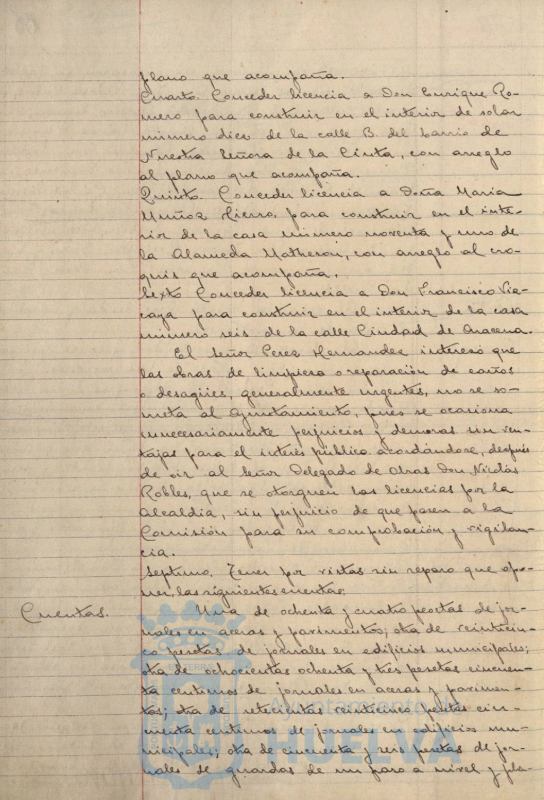 plano que acompaña.
Cuarto. Conceder licencia a Don Enrique Ro-
mero para construir en el interior de solar
número diez de la calle B. del barrio de
Nuestra Señora de la Cinta, con arreglo
al plano que acompaña.
Quinto. Conceder licencia a Doña Maria
Muñoz Hierro, para construir en el inte-
rior de la casa número noventa y uno de
la Alameda Matheson, con arreglo al cro-
quis que acompaña.
Sexto Conceder licencia a Don Francisco Viz-
caya para construir en el interior de la casa
número seis de la calle Ciudad de Aracena.
El Señor Perez Hernandez interesó que
las obras de limpieza o reparación de caños
o desagües, generalmente urgentes, no se so-
meta al Ayuntamiento, pues se ocasiona
innecesariamente perjuicios y demoras sin ven-
tajas para el interés público acordándose, después
de oir al Señor Delegado de Obras Don Nicolás
Robles, que se otorguen las licencias por la
Alcaldia, sin perjuicio de que pasen a la
Comisión para su comprobación y vigilan-
cia.
Septimo. Tener por vistas sin reparo que opo-
ner las siguientes cuentas:
Cuentas. Una de ochenta y cuatro pesetas de jor-
nales en aceras y pavimentos; otra de veinticin-
co pesetas de jornales en edificios municipales;
otra de ochocientas ochenta y tres pesetas cincuen-
ta centimos de jornales en aceras y pavimen-
tos; otra de setecientas veinticinco pesetas cin-
cuenta centimos de jornales en edificios mu-
nicipales; otra de cincuenta y seis pesetas de jor-
nales de guardas de un paso a nivel y pla-
Ayuntamiento de
HUELVA